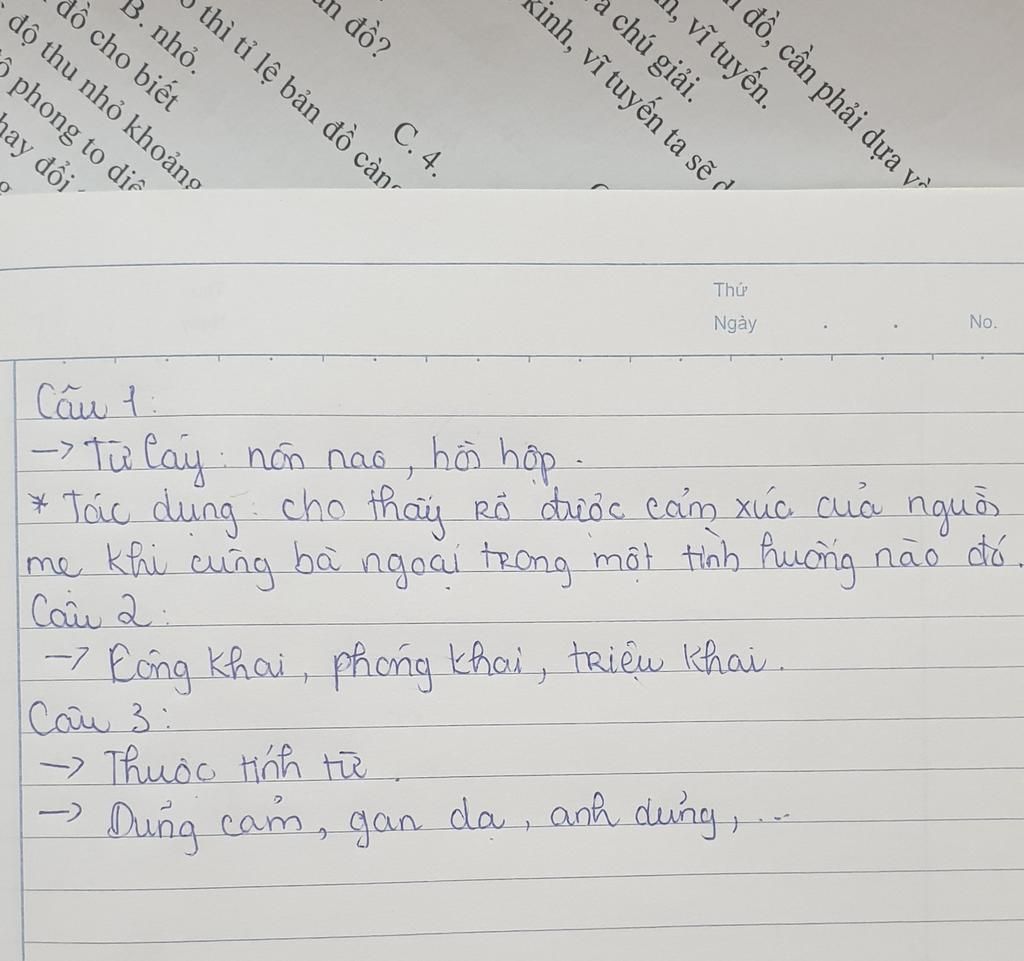 B. nhỏ.
thì tỉ lệ bản đồ càng
đồ cho biết
độ thu nhỏ khoảng
phong to diện
hay đổi
đồ?
C. 4.
đồ, cần phải dựa và
vĩ tuyến.
chú giải.
kinh, vĩ tuyến ta sẽ
Thứ
Ngày . . No.
Câu 1:
-> Từ láy: nôn nao, hồi hộp.
* Tác dụng: cho thấy rõ được cảm xúc của người
mẹ khi cùng bà ngoại trong một tình huống nào đó.
Câu 2:
-> Công khai, phóng khai, triệu khai.
Câu 3:
-> Thuộc tính từ.
-> Dũng cảm, gan dạ, anh dũng, ...